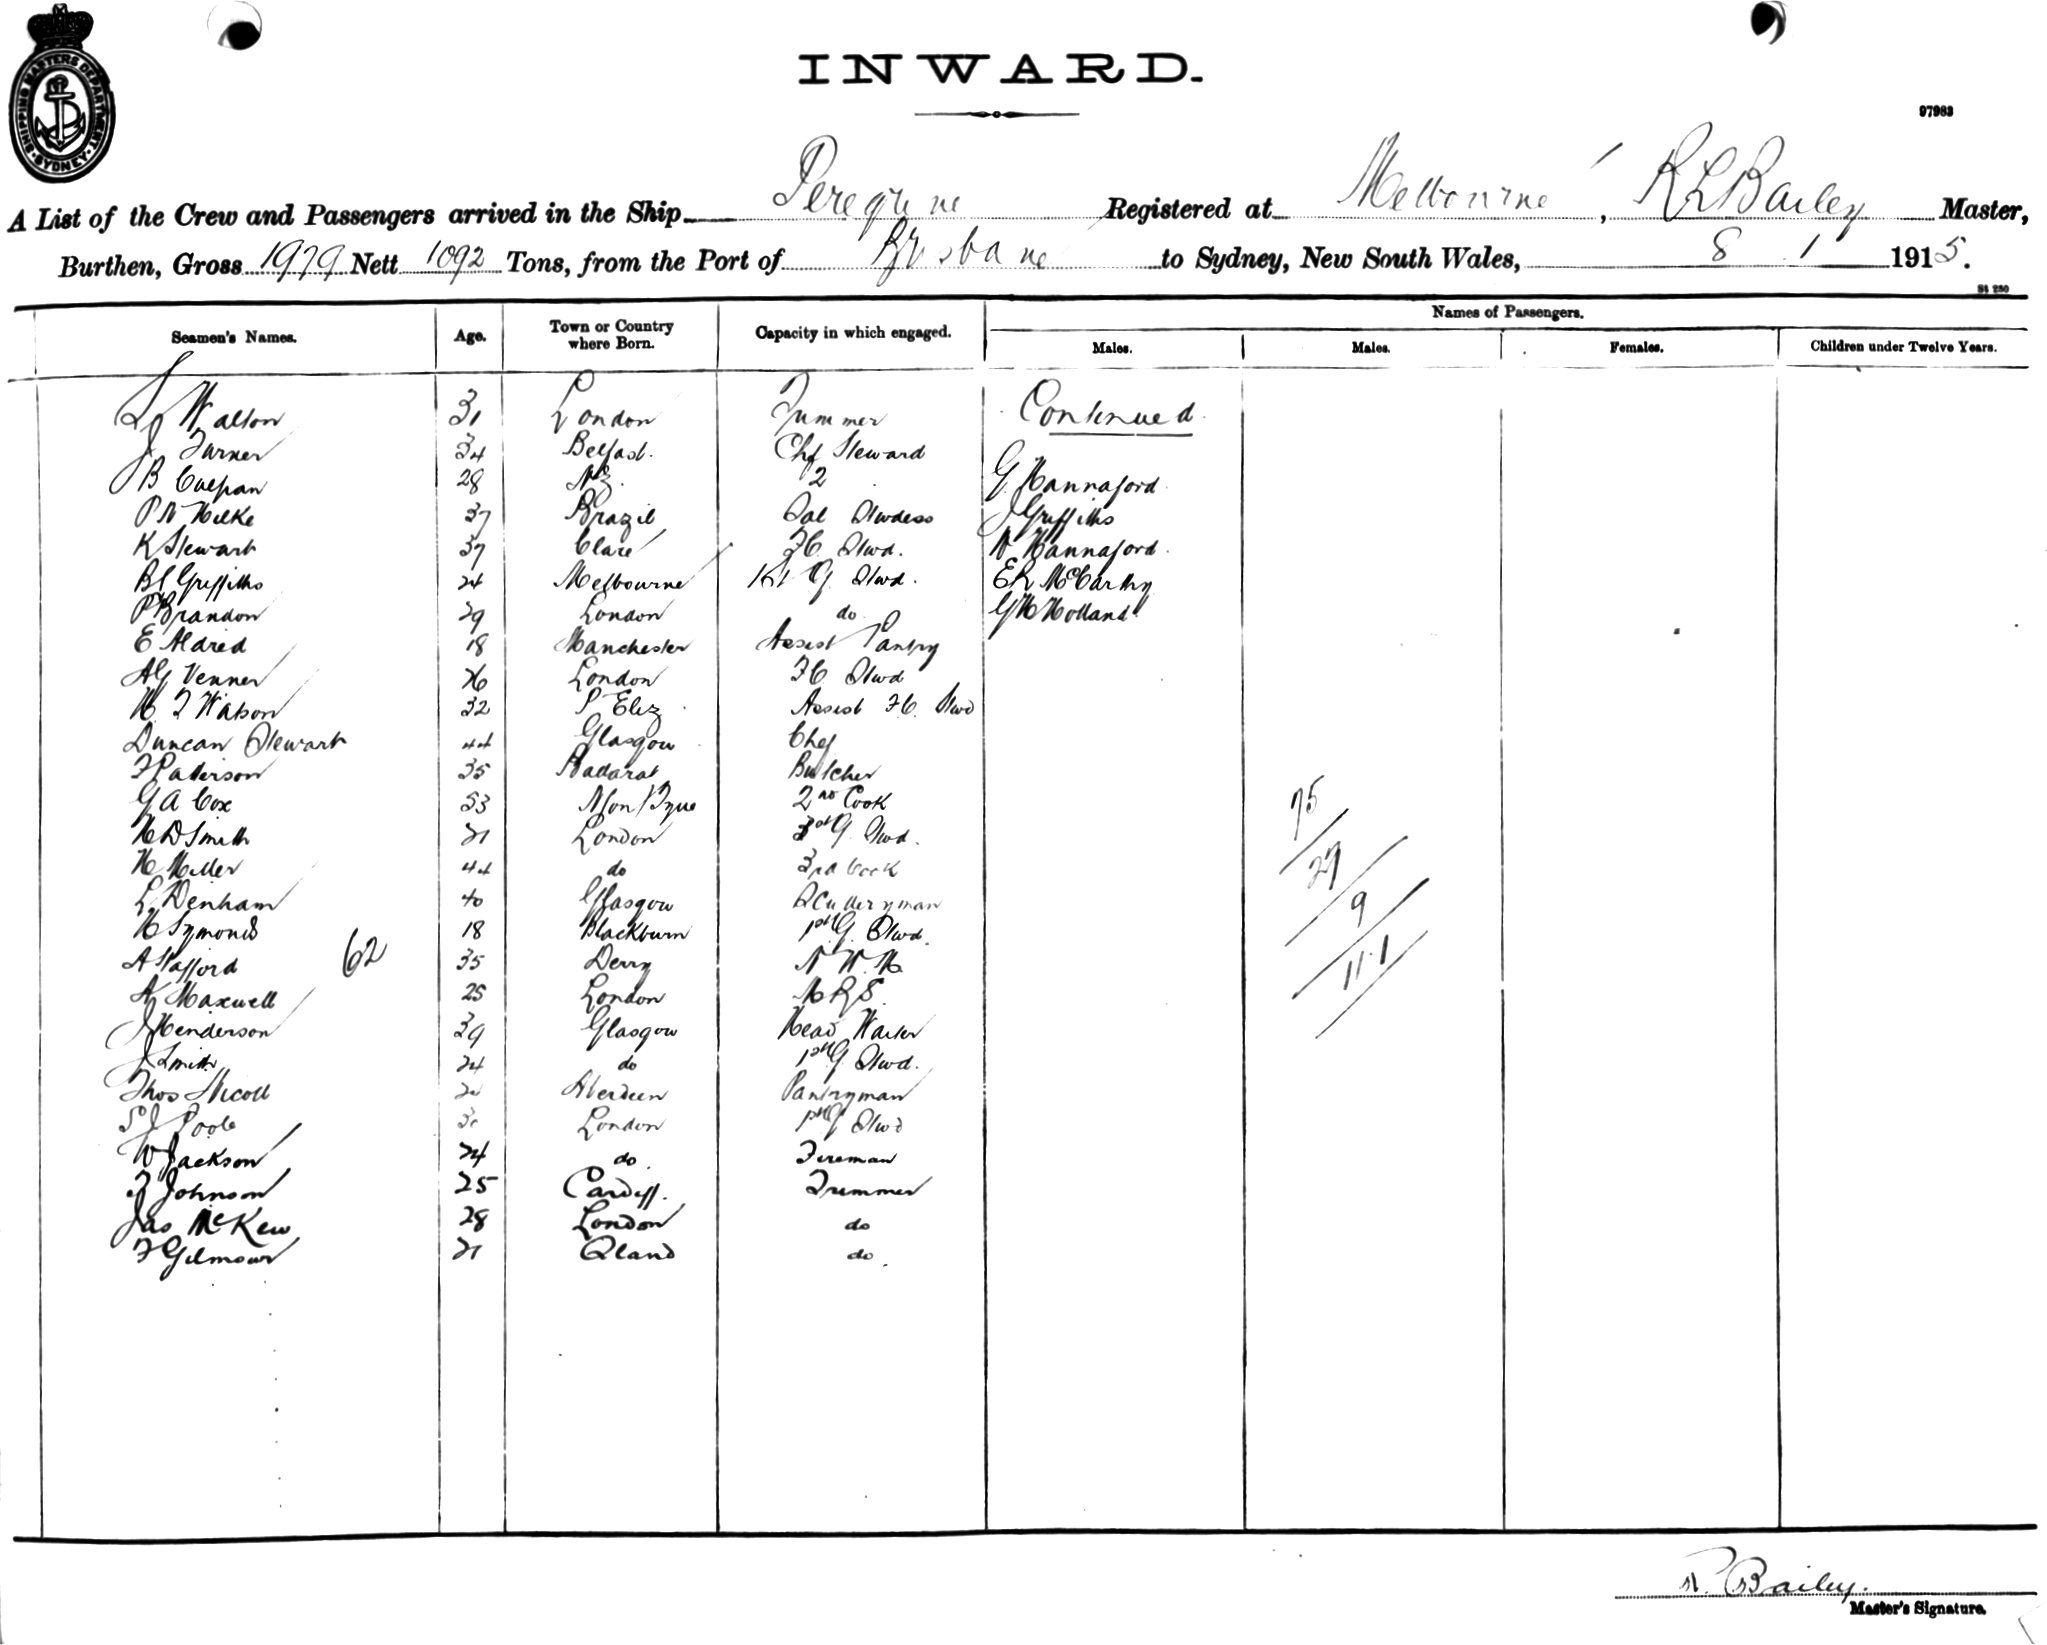 SHIPPING MASTERS DEPARTMENT. SYDNEY.
INWARD.
97983
A List of the Crew and Passengers arrived in the Ship Peregrine Registered at Melbourne, R L Bailey Master,
Burthen, Gross 1979 Nett 1092 Tons, from the Port of Brisbane to Sydney, New South Wales, 8 1 1915.
St 280
Seamen's Names. Age. Town or Country where Born. Capacity in which engaged. Names of Passengers.
Males. Males. Females. Children under Twelve Years.
L Walton 31 London Trimmer Continued
J Turner 34 Belfast. Chf Steward
B 28 NZ. 2 G Hannaford
P N Hilke 37 Brazil Sal Stwdess J Griffiths
K Stewart 37 Clare FC Stwd. W Hannaford
B L Griffiths 24 Melbourne G Stwd. E R McCarthy
P Brandon 29 London do G H Holland
E Aldred 18 Manchester Assist Pantry
A G Venner 26 London FC Stwd
H T Watson 32 P Eliz Assist F.C. Stwd
Duncan Stewart 44 Glasgow Chef
F Paterson 35 Ballarat Butcher
G A Cox 53 N on Tyne 2nd Cook 75
H D Smith 21 London 3rd G. Stwd.
H Miller 44 do 3rd Cook 27
L Denham 40 Glasgow Sculleryman 9
H Symonds 18 Blackburn G. Stwd.
A Stafford 62 35 Derry N W M 11.1
A Maxwell 25 London M R S.
J Henderson 39 Glasgow Head Waiter
J Smith 24 do G. Stwd.
Thos Nicoll Aberdeen Pantryman
S J Poole London G Stwd
W Jackson 24 do Fireman
F Johnson 25 Cardiff. Trimmer
Jas McKew 28 London do
F Gilmour 21 Qland do
R. Bailey.
Master's Signature.